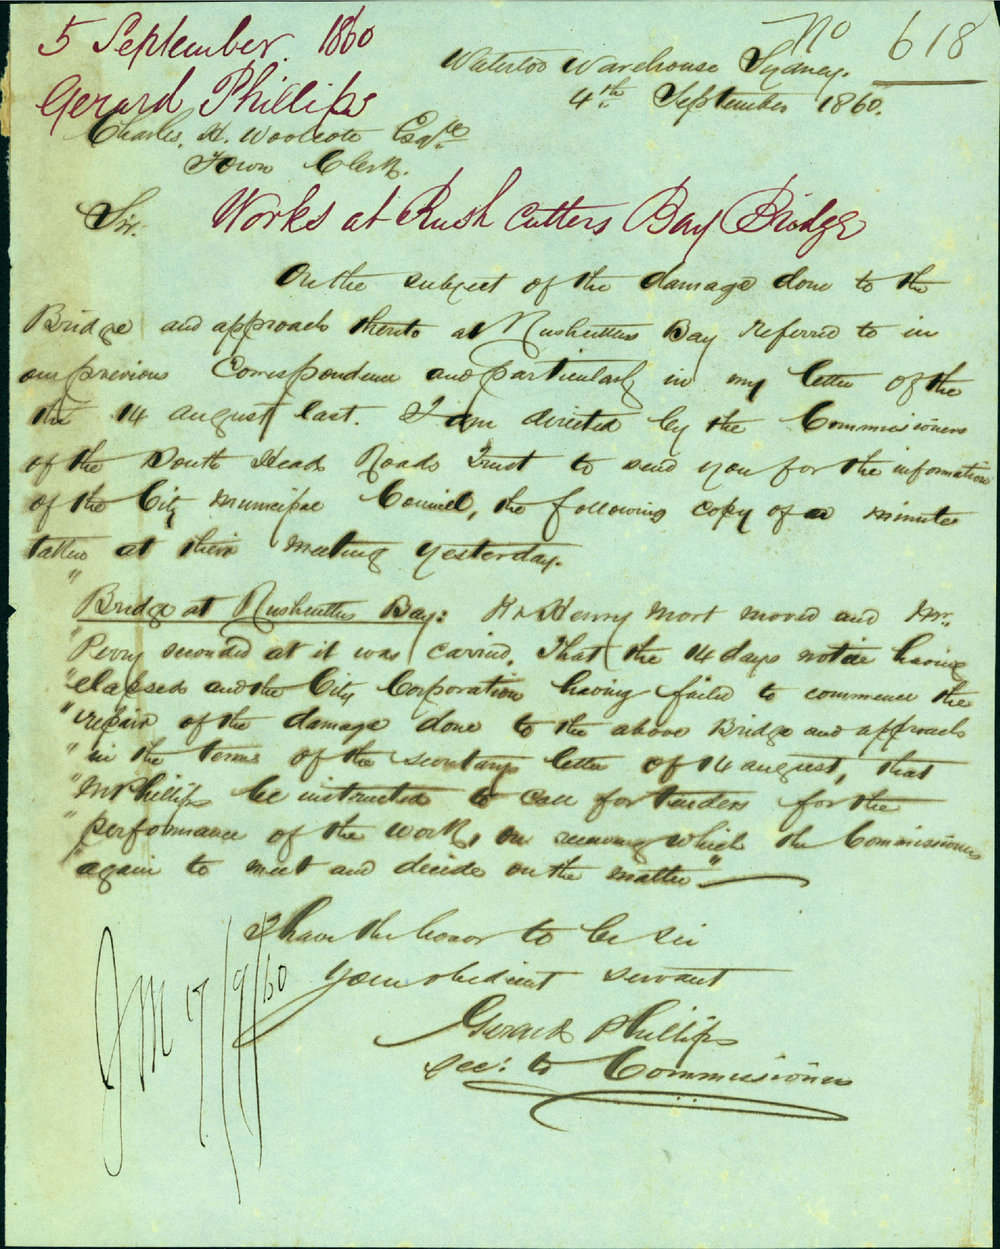 5 September 1860
No 618
Gerard Phillips
Waterloo Warehouse Sydney.
4th September 1860.
Charles. H. Woolcott Esqre
Town Clerk.
Sir.
Works at Rush Cutters Bay Bridge
On the subject of the damage done to the
Bridge and approach thereto at Rushcutters Bay referred to in
our previous Correspondence and particularly in my letter of the
the 14 august last. I am directed by the Commissioners
of the South Head Roads Trust to send you for the information
of the City Municipal Council, the following copy of a minute
taken at their meeting yesterday.
"Bridge at Rushcutters Bay: Mr Henry Mort moved and Mr.
"Perry seconded at it was carried, That the 14 days notice having
"elapsed and the City Corporation having failed to commence the
"repair of the damage done to the above Bridge and approach
"in the terms of the secretarys letter of 14 august, that
"Mr Phillips be instructed to call for tenders for the
"performance of the work, on receiving which the Commissioners
"again to meet and decide on the matter"
I have the honor to be Sir
Your obedient servant
Gerard Phillips
Sec: to Commissioners
JM 17/9/60